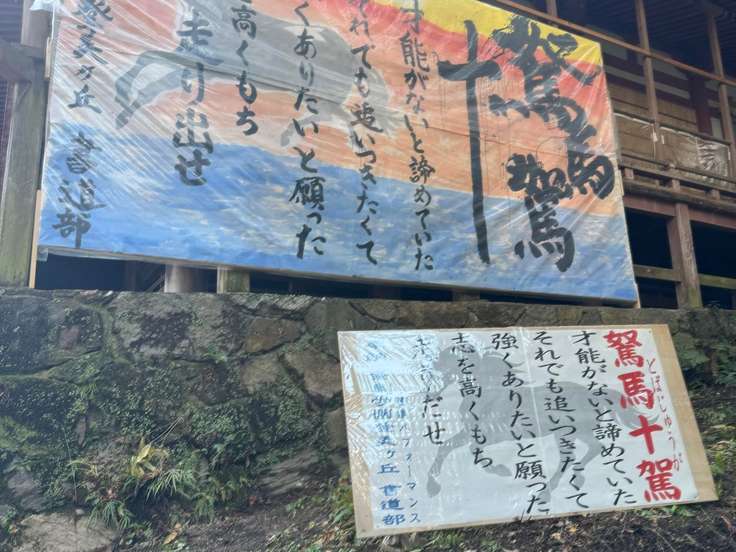 駑馬十駕
才能がないと諦めていた
それでも追いつきたくて
くありたいと願った
高くもち
走り出せ
ヶ丘 書道部
駑馬十駕
どばじゅうが
才能がないと諦めていた
それでも追いつきたくて
強くありたいと願った
志を高くもち
走りだせ
パフォーマンス
ヶ丘 書道部